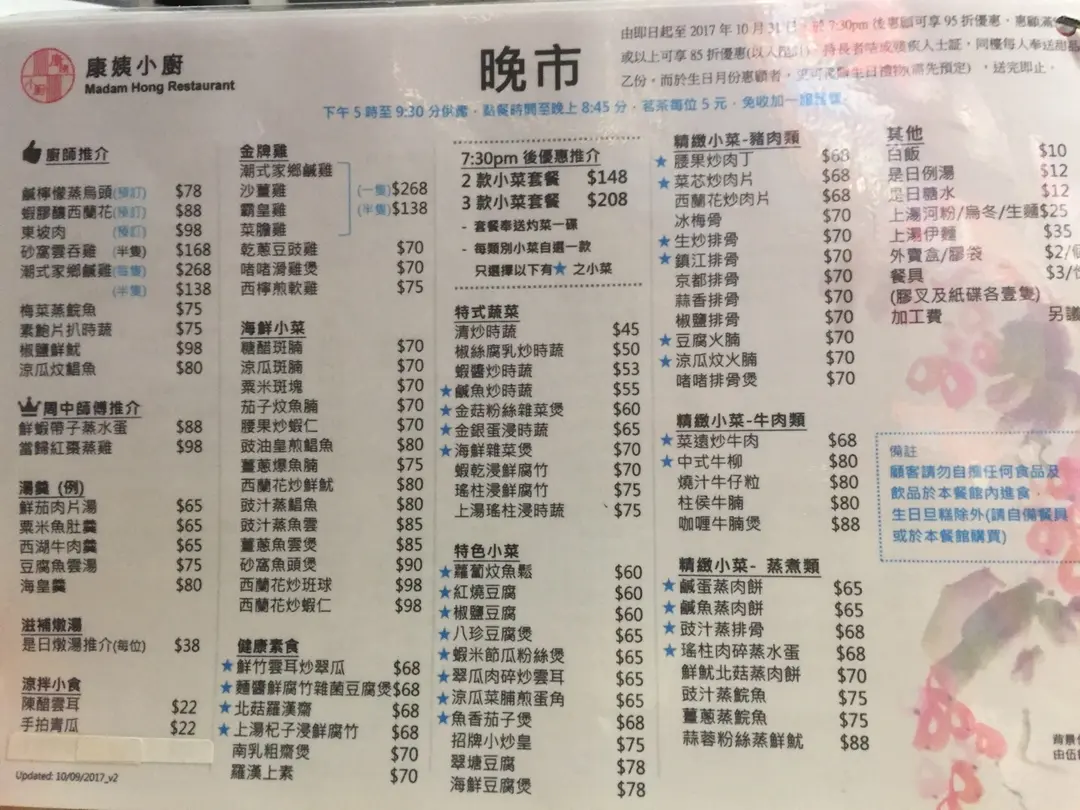 康姨小廚
Madam Hong Restaurant
晚市
由即日起至 2017 年 10 月 31 日，於 7:30pm 後惠顧可享 95 折優惠，惠顧滿
或以上可享 85 折優惠
乙份。而於生日月份惠顧者，
，送完即止。
下午 5 時至 9:30 分供應．點餐時間至晚上 8:45 分．茗茶每位 5 元．免收加一服務費．
廚師推介
鹹檸檬蒸烏頭(預訂) $78
蝦膠釀西蘭花(預訂) $88
東坡肉 (預訂) $98
砂窩雲吞雞 (半隻) $168
潮式家鄉鹹雞(每隻) $268
(半隻) $138
梅菜蒸鯇魚 $75
素鮑片扒時蔬 $75
椒鹽鮮魷 $98
涼瓜炆鯧魚 $80
周中師傅推介
鮮蝦帶子蒸水蛋 $88
當歸紅棗蒸雞 $98
湯羹 (例)
鮮茄肉片湯 $65
粟米魚肚羹 $65
西湖牛肉羹 $65
豆腐魚雲湯 $75
海皇羹 $80
滋補燉湯
是日燉湯推介(每位) $38
涼拌小食
陳醋雲耳 $22
手拍青瓜 $22
Updated: 10/09/2017_v2
金牌雞
潮式家鄉鹹雞
沙薑雞 (一隻)$268
霸皇雞 (半隻)$138
菜膽雞
乾蔥豆豉雞 $70
啫啫滑雞煲 $70
西檸煎軟雞 $75
海鮮小菜
糖醋斑腩 $70
涼瓜斑腩 $70
粟米斑塊 $70
茄子炆魚腩 $70
腰果炒蝦仁 $70
豉油皇煎鯧魚 $80
薑蔥爆魚腩 $75
西蘭花炒鮮魷 $80
豉汁蒸鯧魚 $80
豉汁蒸魚雲 $85
薑蔥魚雲煲 $85
砂窩魚頭煲 $90
西蘭花炒班球 $98
西蘭花炒蝦仁 $98
健康素食
★鮮竹雲耳炒翠瓜 $68
★麵醬鮮腐竹雜菌豆腐煲$68
★北菇羅漢齋 $68
★上湯杞子浸鮮腐竹 $68
南乳粗齋煲 $70
羅漢上素 $70
7:30pm 後優惠推介
2 款小菜套餐 $148
3 款小菜套餐 $208
- 套餐奉送灼菜一碟
- 每類別小菜自選一款
只選擇以下有★ 之小菜
特式蔬菜
清炒時蔬 $45
椒絲腐乳炒時蔬 $50
蝦醬炒時蔬 $53
★鹹魚炒時蔬 $55
★金菇粉絲雜菜煲 $60
★金銀蛋浸時蔬 $65
★海鮮雜菜煲 $70
蝦乾浸鮮腐竹 $70
瑤柱浸鮮腐竹 $75
上湯瑤柱浸時蔬 $75
特色小菜
★蘿蔔炆魚鬆 $60
★紅燒豆腐 $60
★椒鹽豆腐 $60
★八珍豆腐煲 $65
★蝦米節瓜粉絲煲 $65
★翠瓜肉碎炒雲耳 $65
★涼瓜菜脯煎蛋角 $65
★魚香茄子煲 $68
招牌小炒皇 $75
翠塘豆腐 $78
海鮮豆腐煲 $78
精緻小菜-豬肉類
★腰果炒肉丁 $68
★菜芯炒肉片 $68
西蘭花炒肉片 $68
冰梅骨 $70
★生炒排骨 $70
★鎮江排骨 $70
京都排骨 $70
蒜香排骨 $70
椒鹽排骨 $70
★豆腐火腩 $70
★涼瓜炆火腩 $70
啫啫排骨煲 $70
精緻小菜-牛肉類
★菜遠炒牛肉 $68
★中式牛柳 $80
燒汁牛仔粒 $80
柱侯牛腩 $80
咖喱牛腩煲 $88
精緻小菜- 蒸煮類
★鹹蛋蒸肉餅 $65
★鹹魚蒸肉餅 $65
★豉汁蒸排骨 $68
★瑤柱肉碎蒸水蛋 $68
鮮魷北菇蒸肉餅 $70
豉汁蒸鯇魚 $75
薑蔥蒸鯇魚 $75
蒜蓉粉絲蒸鮮魷 $88
其他
白飯 $10
是日例湯 $12
是日糖水 $12
上湯河粉/烏冬/生麵$25
上湯伊麵 $35
外賣盒/膠袋 $2/個
餐具 $3/
(膠叉及紙碟各壹隻)
加工費 另議
備註
顧客請勿自攜任何食品及
飲品於本餐館內進食．
生日旦糕除外(請自備餐具
或於本餐館購買)
背景
由伍